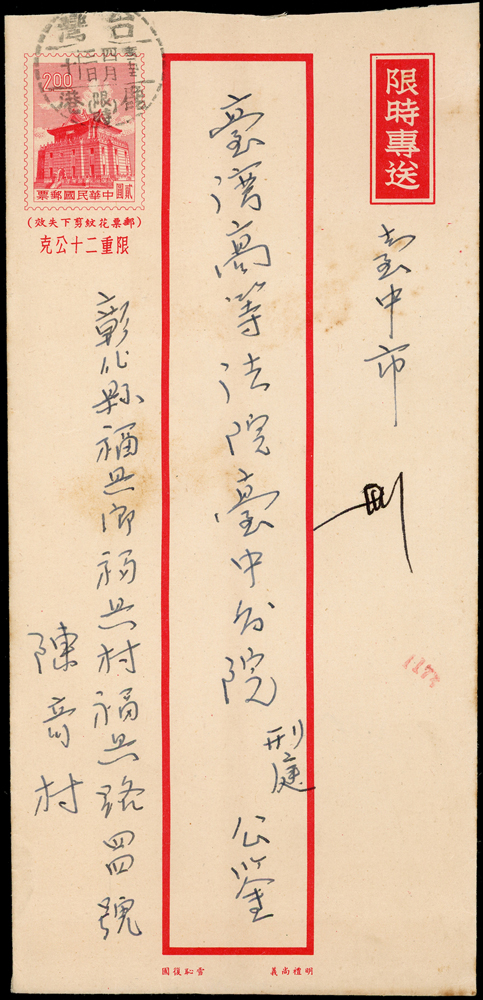 限時專送
臺中市
刑
臺灣高等法院臺中分院
刑庭
公鑒
彰化縣福興鄉福興村福興路四號
陳

村
台灣
四月
二日
限時
港
2.00
票郵國民華中
貳圓
(郵票花紋剪下失效)
限重二十公克
明禮尚義
雪恥復國